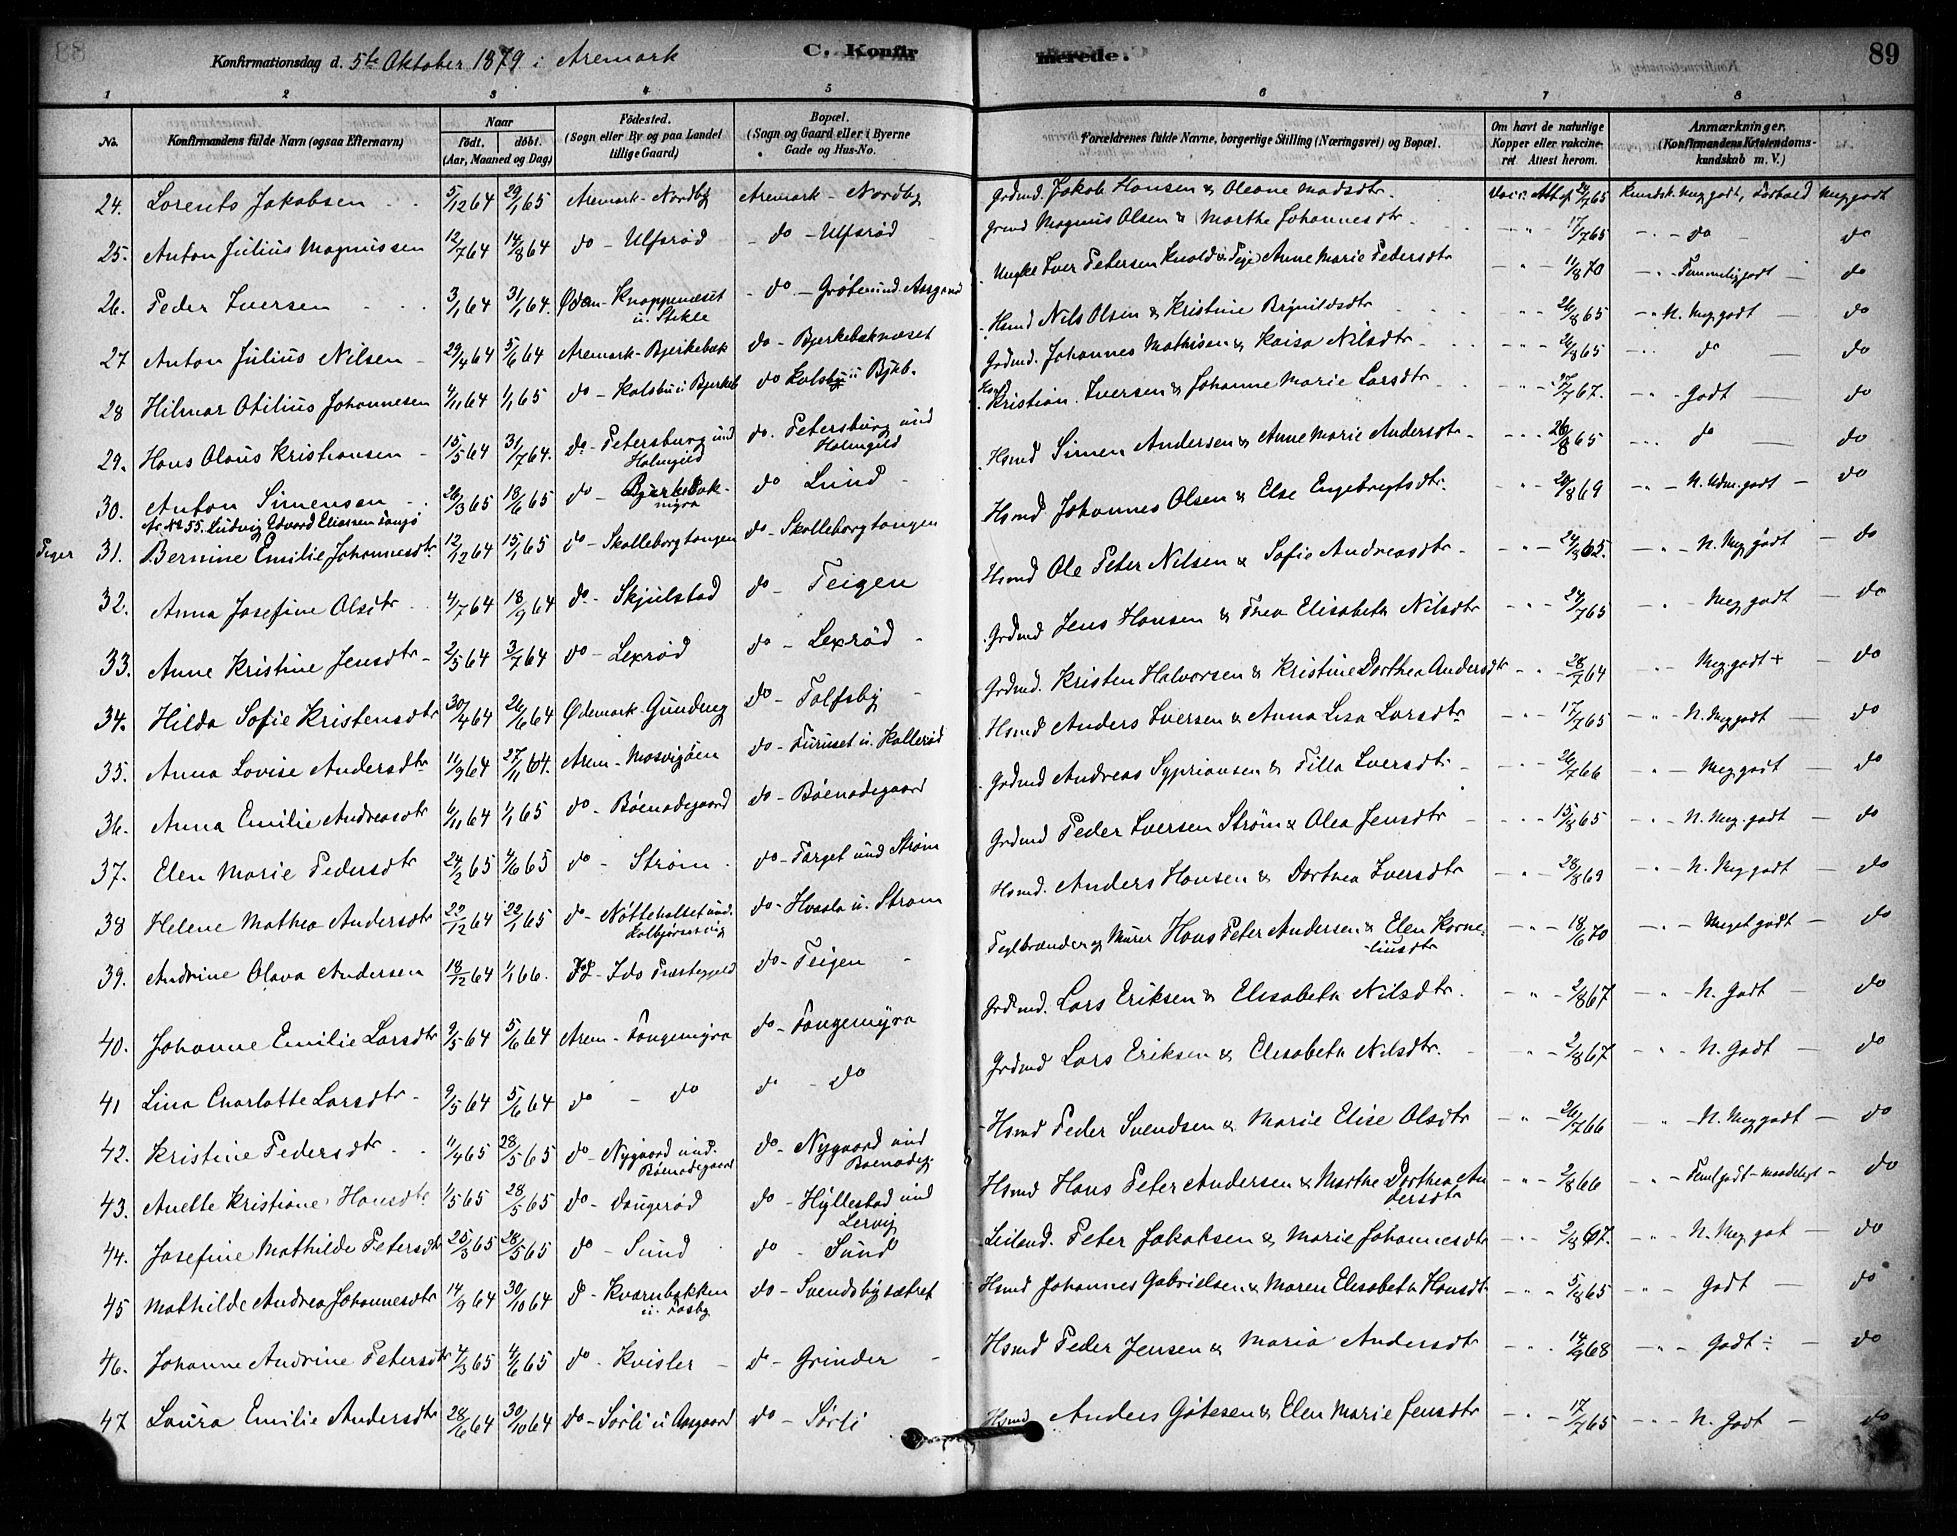 Konfirmationsdag d. 5te Oktober 1879 i Aremark
C. Konfirmerede.
89
1 2 3 4 5 6 7 8
No. | Konfirmandens fulde Navn (ogsaa Efternavn) | Naar født. døbt. (Aar, Maaned og Dag) | Fødested. (Sogn eller By og paa Landet tillige Gaard) | Bopæl. (Sogn og Gaard eller i Byerne Gade og Hus-No. | Forældrenes fulde Navne, borgerlige Stilling (Næringsvei) og Bopæl. | Om havt de naturlige Kopper eller vaccineret. Attest herom. | Anmærkninger. (Konfirmandens Kristendomskundskab m. V.)
24. Lorents Jakobsen 5/12 64 29/1 65 Aremark - Nordby Aremark - Nordby Grdmd. Jakob Hansen & Oleane Madsdtr. Meg godt, Forhold Meg godt
25. Anton Julius Magnussen 12/7 64 14/8 64 do - Ulfsrød do - Ulfsrød Magnus Olsen & Marthe Johannesdtr. 17/7 65 do do
26. Peder Iversen 3/1 64 31/1 64. Knappenæset u. Stikle do Iver Petersen & Anne Marie Pedersdtr 11/8 70 do
27 Anton Julius Nilsen 29/4 64 5/6 64 Aremark - Bjerkebæk do - Bjerkebæknæset Hsmd Nils Olsen & Kristine 26/8 65 N. Meg godt do
28 Hilmar Otilius Johannesen 4/11 64 1/1 65 do - do Grdmd. Johannes Mathisen & Kaisa Nilsdtr 26/8 65 do do
29. Hans Olaus Kristiansen 15/5 64 31/7 64. do - Petersburg und Holmgild do. Petersburg und Holmgild Kristian Iversen & Johanne Marie Larsdtr 67. Godt do
30. Anton Simensen 26/3 65 18/6 65 do - do Lund Hsmd Simen Andersen & Anne Marie Andersdtr 26/8 65 do do
Piger 31. Bernine Emilie Johannesdtr. 12/12 64 15/1 65 do - Skolleborgtangen do - Skolleborgtangen Hsmd Johannes Olsen & Else Engebregtsdtr. 20/8 69 do
32. Anna Josefine Olsdtr 4/7 64 18/9 64 do - Skjulstad do - Teigen Hsmd Ole Peter Nilsen & Sofie Andreasdtr 24/8 65. N. Meg godt do
33. Anne Kristine Jensdtr 2/5 64 3/7 64 do - Lexrød do - Lexrød Grdmd. Jens Hansen & Thea Elisabeth Nilsdtr 24/7 65 Meg godt do
34. Hilda Sofie Kristensdtr 30/4 64 26/6 64 Ødemark - Gundeng do - Tolfsby Grdmd. Kristen Halvorsen & Kristine Dorthea Andersdtr 28/7 64 Meg godt + do
35. Anna Lovise Andersdtr 11/9 64 27/11 64. Arem - Mosvigøen do - Furuset u. Kollerød Hsmd Anders Iversen & Anna Lisa Larsdtr 17/7 65 N. Meg godt do
36. Anna Emilie Andreasdtr 6/11 64 1/1 65 do - Böenodegaard do - Böenodegaard Grdmd Andreas Sypriansen & Tilla Iversdtr 26/7 66 Meg godt do
37. Elen Marie Pedersdtr 24/2 65 4/6 65 do - Strøm do - Torget und Strøm Grdmd Peder Iversen Strøm & Olea Jensdtr 15/8 65 N. Meg godt do
38 Helene Mathea Andersdtr 22/12 64 22/1 65 do - Nötteholtet und. Kolbjørnsvig do - Hvasla u. Strøm Hsmd. Anders Hansen & Dorthea Iversdtr 28/8 69 N. Meg godt do
39. Andrine Olava Andersen 18/12 64 1/1 66. Ids Præstegjeld do - Teigen Teglbrænder og Murer Hans Peter Andersen & Elen Korneliusdtr 18/6 70 Meget godt do
40. Johanne Emilie Larsdtr 9/5 64 5/6 64 Arem - Tangemyra do - Tangemyra Grdmd. Lars Eriksen & Elisabeth Nilsdtr. 2/8 67 N. Godt do
41 Lina Charlotte Larsdtr 9/5 64 5/6 64 do - do do - do Grdmd Lars Eriksen & Elisabeth Nilsdtr. 2/8 67 N. Godt do
42. Kristine Pedersdtr 11/4 65 28/5 65 do - Nygaard und. Böenodegaard do - Nygaard und Hsmd Peder Svendsen & Marie Elise Olsdtr 26/7 66 N. Meg godt do
43. Anette Kristiane Hansdtr. 1/5 65 28/5 65 do - do - Hyllestad und Lervig Hsmd Hans Peter Andersen & Marthe Dorthea Andersdtr 2/8 66 do
44. Josefine Mathilde Petersdtr 25/3 65 28/5 65 do - Sund do - Sund Leiland. Peter Jakobsen & Marie Johannesdtr 2/8 67. N. Meg got do
45 Mathilde Andrea Johannesdtr 14/9 64 30/10 64 d - Kvernbakken do - Svendsbysætret Hsmd Johannes Gabrielsen & Maren Elisabeth Hansdtr 5/8 65 Godt do
46. Johanne Andrine Petersdtr 4/3 65 4/6 65 do - Kvisler do - Grinder Hsmd Peder Jensen & Maria Andersdtr 14/9 68 Godt do
47 Laura Emilie Andersdtr 28/6 64 30/10 64 do - Sørli u Aasgaard do - Sørli Hsmd Anders Götesen & Elen Marie Jensdtr 17/7 65 N. Godt do